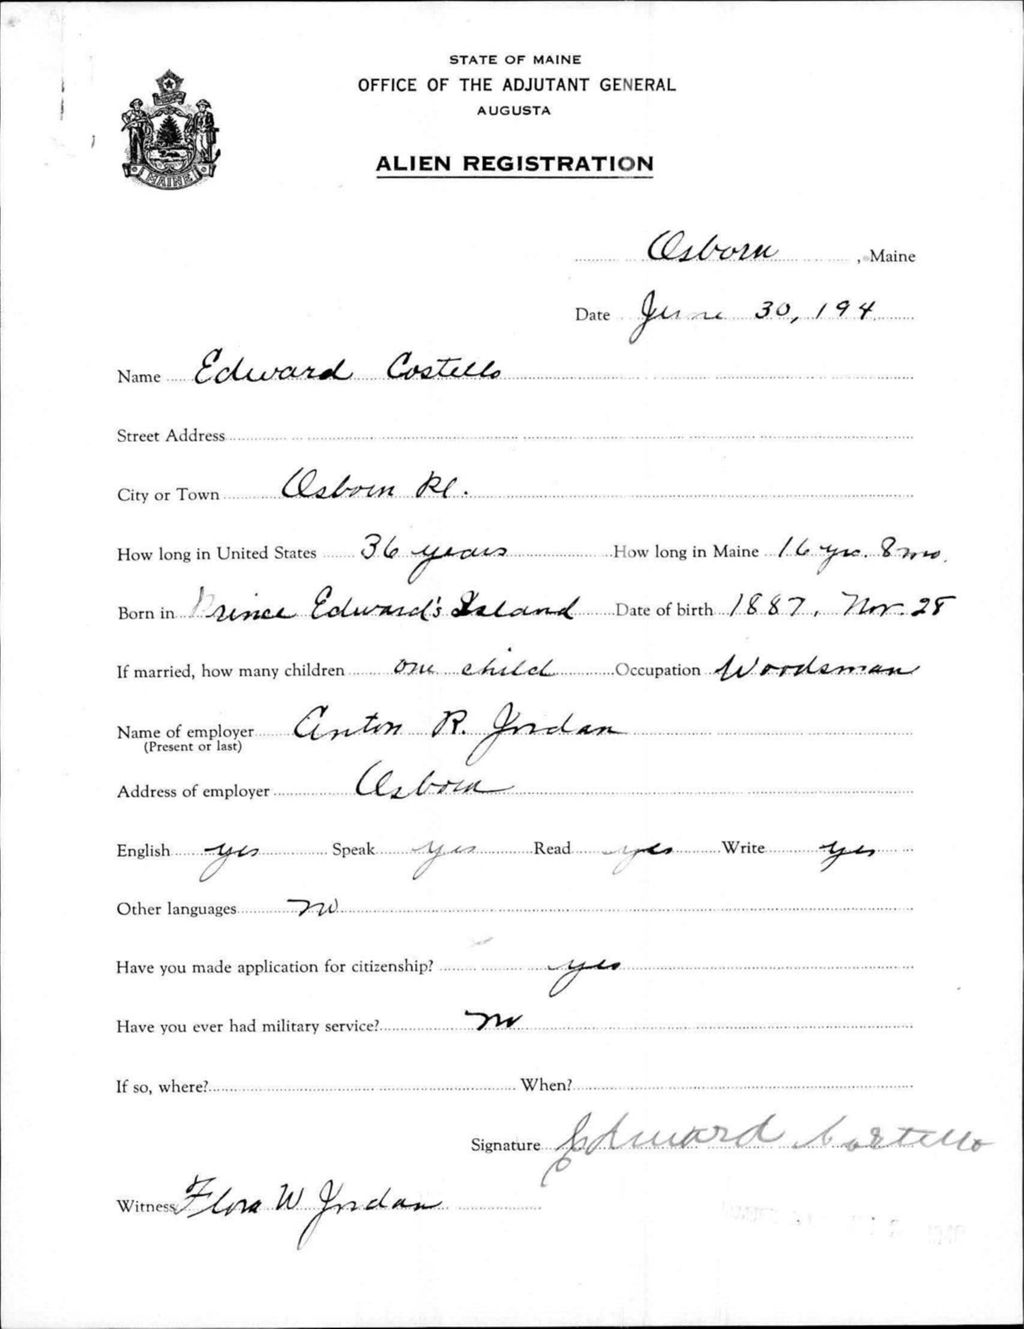 STATE OF MAINE
OFFICE OF THE ADJUTANT GENERAL
AUGUSTA
ALIEN REGISTRATION
MAINE
Osborn, Maine
Date June 30, 194
Name Edward Costello
Street Address
City or Town Osborn Pl.
How long in United States 36 years How long in Maine 16 yrs. 8 mo.
Born in Prince Edward's Island Date of birth 1887, Nov. 28
If married, how many children one child Occupation Woodsman
Name of employer Anton R. Jordan
(Present or last)
Address of employer Osborn
English yes Speak yes Read yes Write yes
Other languages no
Have you made application for citizenship? yes
Have you ever had military service? no
If so, where? When?
Signature Edward Costello
Witness Flora W Jordan